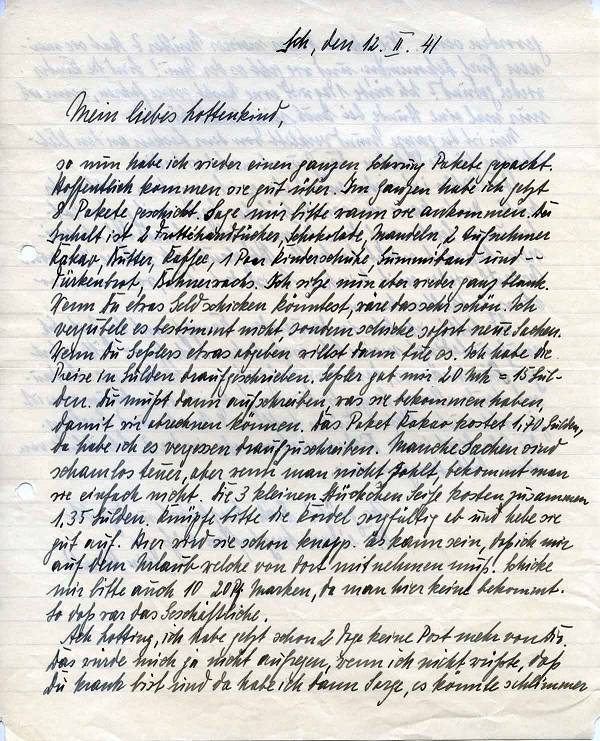 Sch, den 12. II. 41
Mein liebes Lottenkind,
so nun habe ich wieder einen ganzen Schwung Pakete gepackt.
Hoffentlich kommen sie gut über. Im ganzen habe ich jetzt
8 Pakete geschickt. Sage mir bitte wann sie ankommen. Der
Inhalt ist 2 Frottéhandtücher, Schokolade, Mandeln, 2 Aufnehmer
Kakao, Butter, Kaffee, 1 Paar Kinderschuhe, Gummiband und --
Türkenbrot, Bohnerwachs. Ich sitze nun aber wieder ganz blank.
Wenn Du etwas Geld schicken könntest, wäre das sehr schön. Ich
vergeude es bestimmt nicht, sondern schicke sofort neue Sachen.
Wenn Du Seßlers etwas abgeben willst dann tue es. Ich habe die
Preise in Gulden draufgeschrieben. Seßler gab mir 20 Mk = 15 Gul-
den. Du mußt dann aufschreiben, was sie bekommen haben,
damit wir abrechnen können. Das Paket Kakao kostet 1,70 Gulden,
da habe ich es vergessen draufzuschreiben. Manche Sachen sind
schamlos teuer, aber wenn man nicht zahlt, bekommt man
sie einfach nicht. Die 3 kleinen Stückchen Seife kosten zusammen
1,35 Gulden. Knüpfe bitte die Kordel sorgfältig ab und hebe sie
gut auf. Hier wird sie schon knapp. Es kann sein, daß ich mir
auf dem Urlaub welche von dort mitnehmen muß. Schicke
mir bitte auch 10 20 Pf. Marken, da man hier keine bekommt.
So daß war das Geschäftliche.
Ach Lotting, ich habe jetzt schon 2 Tage keine Post mehr von Dir.
Das würde mich ja nicht aufregen, wenn ich nicht wüßte, daß
Du krank bist und da habe ich dann Sorge, es könnte schlimmer